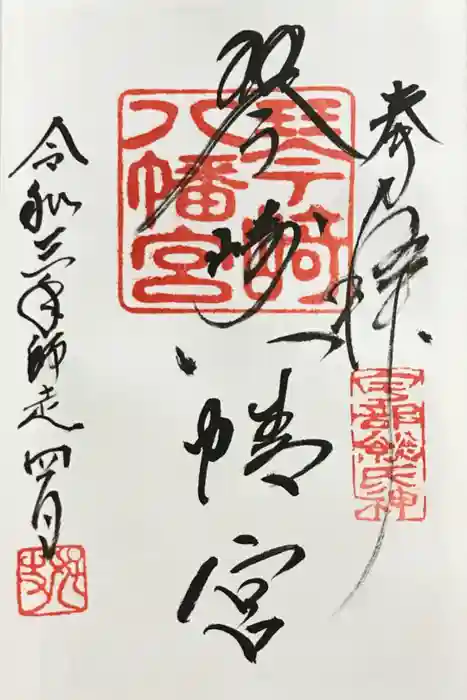 奉拝
琴崎八幡宮
琴崎
八幡宮
宇部総氏神
令和三年師走四日